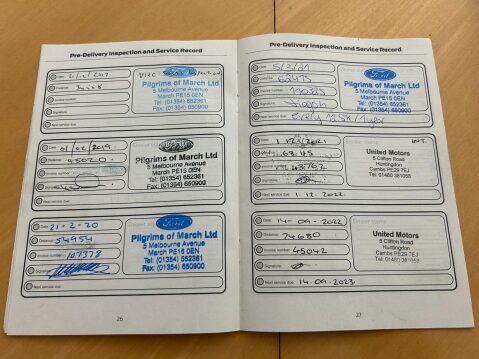 Pre-Delivery Inspection and Service Record
Date
VHC
Distance
Invoice number
Signature
Next service due
Pilgrims of March Ltd
5 Melbourne Avenue
March PE15 0EN
Tel: (01354) 652361
Fax: (01354) 650900
Date 01/02/2019
Distance 45020
Invoice number
Signature
Next service due
Pilgrims of March Ltd
5 Melbourne Avenue
March PE15 0EN
Tel: (01354) 652361
Fax: (01354) 650900
Date 21-2-20
Distance 54954
Invoice number 107378
Signature
Next service due
Ford
Pilgrims of March Ltd
5 Melbourne Avenue
March PE15 0EN
Tel: (01354) 652361
Fax: (01354) 650900
26
Pre-Delivery Inspection and Service Record
Date 5/3/21
Distance 62475
Invoice number
Signature
Next service due Every 12.5k / 1 year
Ford
Pilgrims of March Ltd
5 Melbourne Avenue
March PE15 0EN
Tel: (01354) 652361
Fax: (01354) 650900
Date 1.12.2021
INT.
Next service due 1.12.2022
United Motors
5 Clifton Road
Huntingdon
Cambs PE29 7EJ
Tel: 01480 381058
Date 14-09-2022
Distance 74680
Invoice number 45042
Signature
Next service due 14-09-2023
United Motors
5 Clifton Road
Huntingdon
Cambs PE29 7EJ
Tel: 01480 381058
27